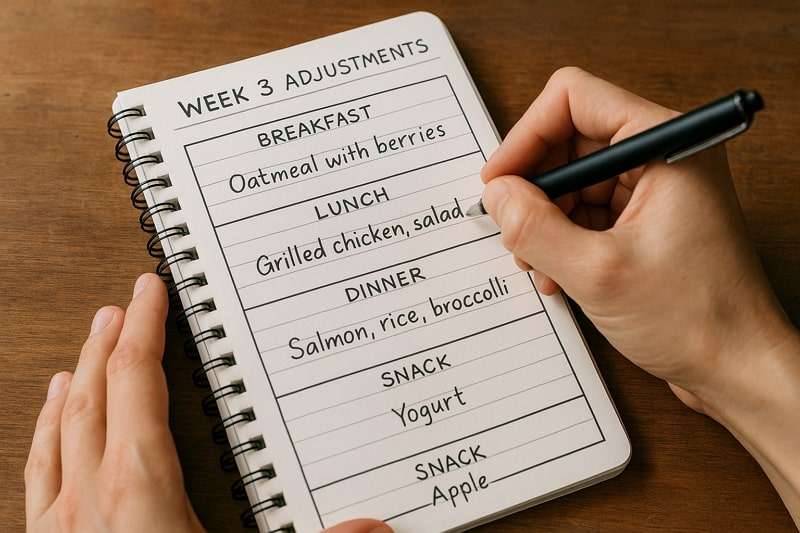 WEEK 3 ADJUSTMENTS
BREAKFAST
Oatmeal with berries
LUNCH
Grilled chicken, salad
DINNER
Salmon, rice, broccolli
SNACK
Yogurt
SNACK
Apple